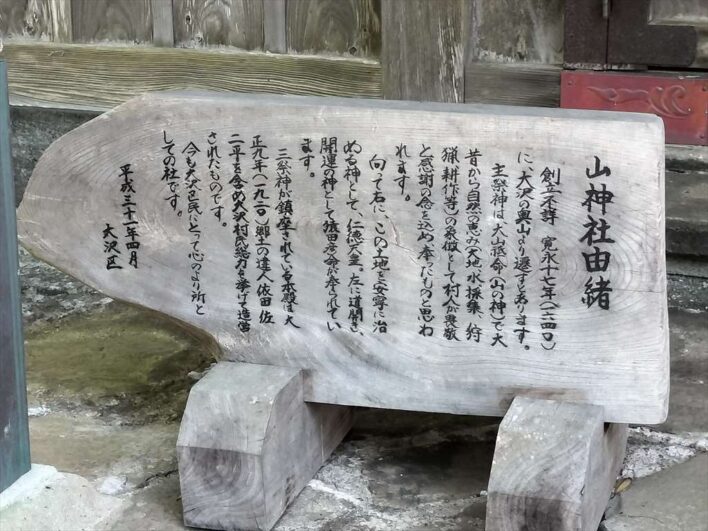 山神社由緒
創立不詳 寛永十七年(一六四〇)
に、大沢の奥山より遷すとあります。
主祭神は大山祇命(山の神)で大
昔から自然の恵み(大地、水、採集、狩
猟、耕作等)の象徴として村人が畏敬
と感謝の念を込め奉たものと思わ
れます。
向って右に、この土地を安寧に治
める神として、仁徳天皇。左に道開き、
開運の神として猿田彦命が奉られてい
ます。
三祭神が鎮座されている本殿は大
正九年(一九二〇)郷土の達人依田佐
二平を含め大沢村民総力を挙げて造営
されたものです。
今も大沢区民にとって心のより所と
しての社です。
平成三十一年四月
大沢区